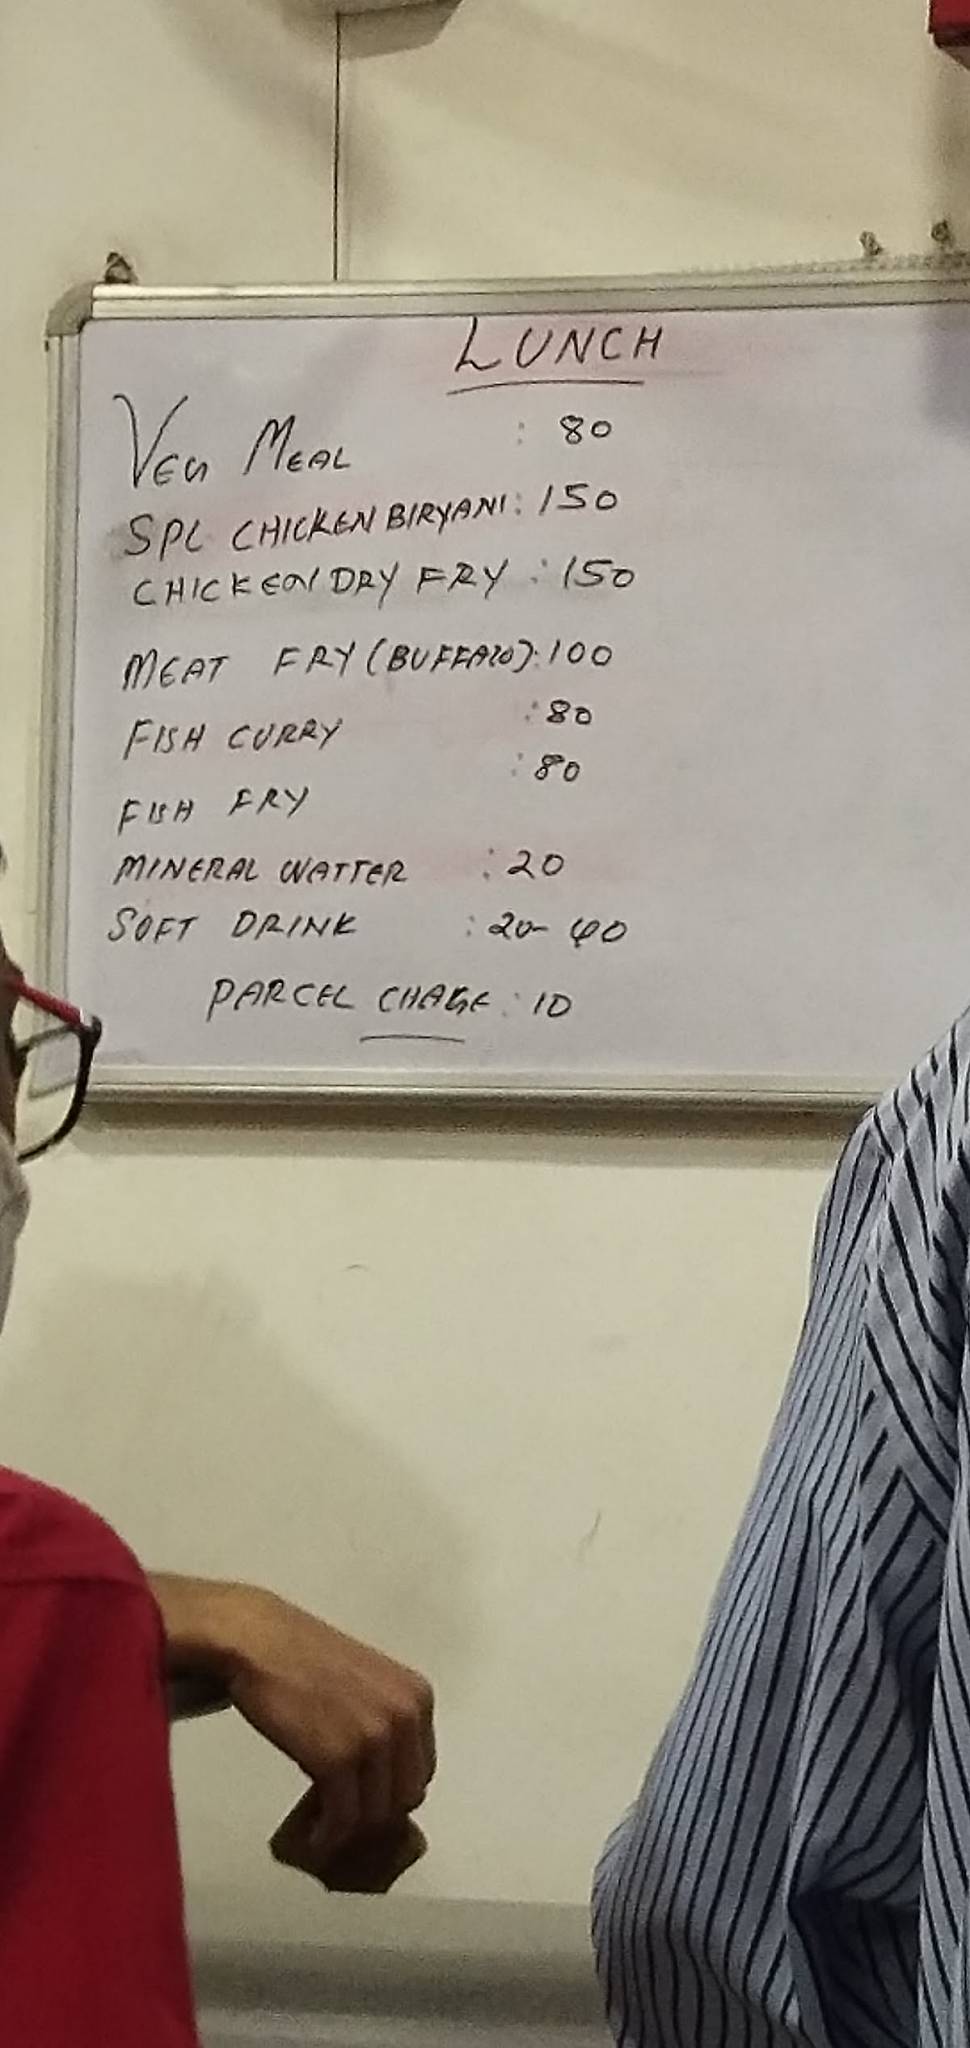 LUNCH
VEG MEAL : 80
SPL CHICKEN BIRYANI : 150
CHICKEN DRY FRY : 150
MEAT FRY (BUFFALO) : 100
FISH CURRY : 80
FISH FRY : 80
MINERAL WATTER : 20
SOFT DRINK : 20-40
PARCEL CHAGE : 10